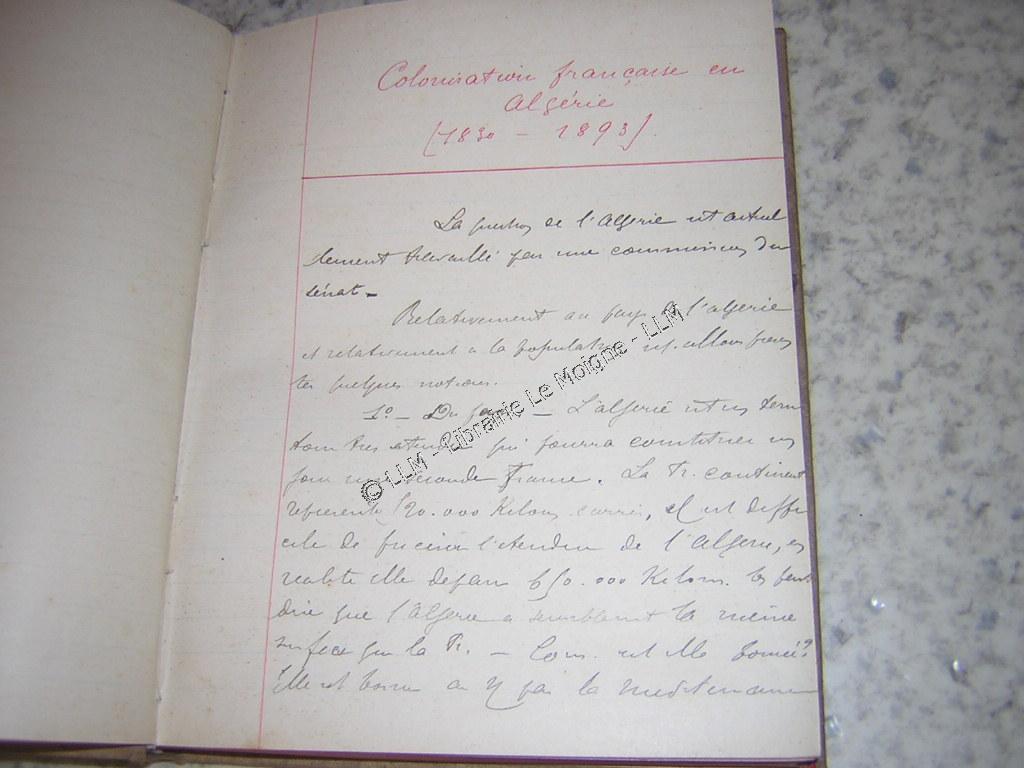 Colonisation française en
Algérie
(1830 - 1893).
La question de l'Algérie est actuel
lement travaillé par une commission du
sénat.
Relativement au pays de l'algerie
et relativement à la population
quelques notions.
1º - Du pays - L'algerie est un terri
toire très étendu qui pourra constituer un
jour une seconde France. La Fr. continent
représente 520.000 Kilom carrés, il est diffi
cile de préciser l'étendue de l'Algerie, en
realité elle depasse 650.000 Kilom.
dire que l'Algerie a sensiblement la même
surface que la Fr. - Com. est elle bornée?
Elle est bornée au N par la mediterranée
© LLM - Librairie Le Moigne - LLM